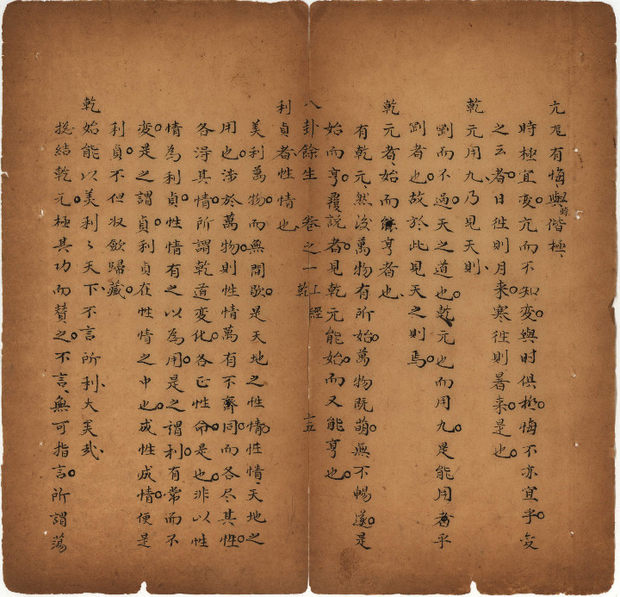 亢龙有悔、與时偕極、
時極宜变亢而不知变與时俱极悔不亦宜乎变
之云者日徃則月来寒徃則暑来是也
乾元用九乃見天則
剛而不過天之道也乾元也而用九是能用者乎
剛者也故於此見天之則焉
乾元者始而亨者也
有乾元然後萬物有所始萬物既萌無不暢遂是
始而亨覆說者見乾元能始而又能亨也
八卦餘生 卷之一 上經 乾 十五
利貞者性情也
美利萬物而無間歇是天地之性情性情天地之
用也涉於萬物則性情萬有不齊同而各尽其性
各得其情所謂乾道変化各正性命是也非以性
情為利貞性情有之以為用是之謂利有常而不
变是之謂貞利貞在性情之中也成性成情便是
利貞不但収斂歸藏
乾始能以美利利天下不言所利大美哉
捴結乾元極其功而賛之不言無可指言所謂蕩